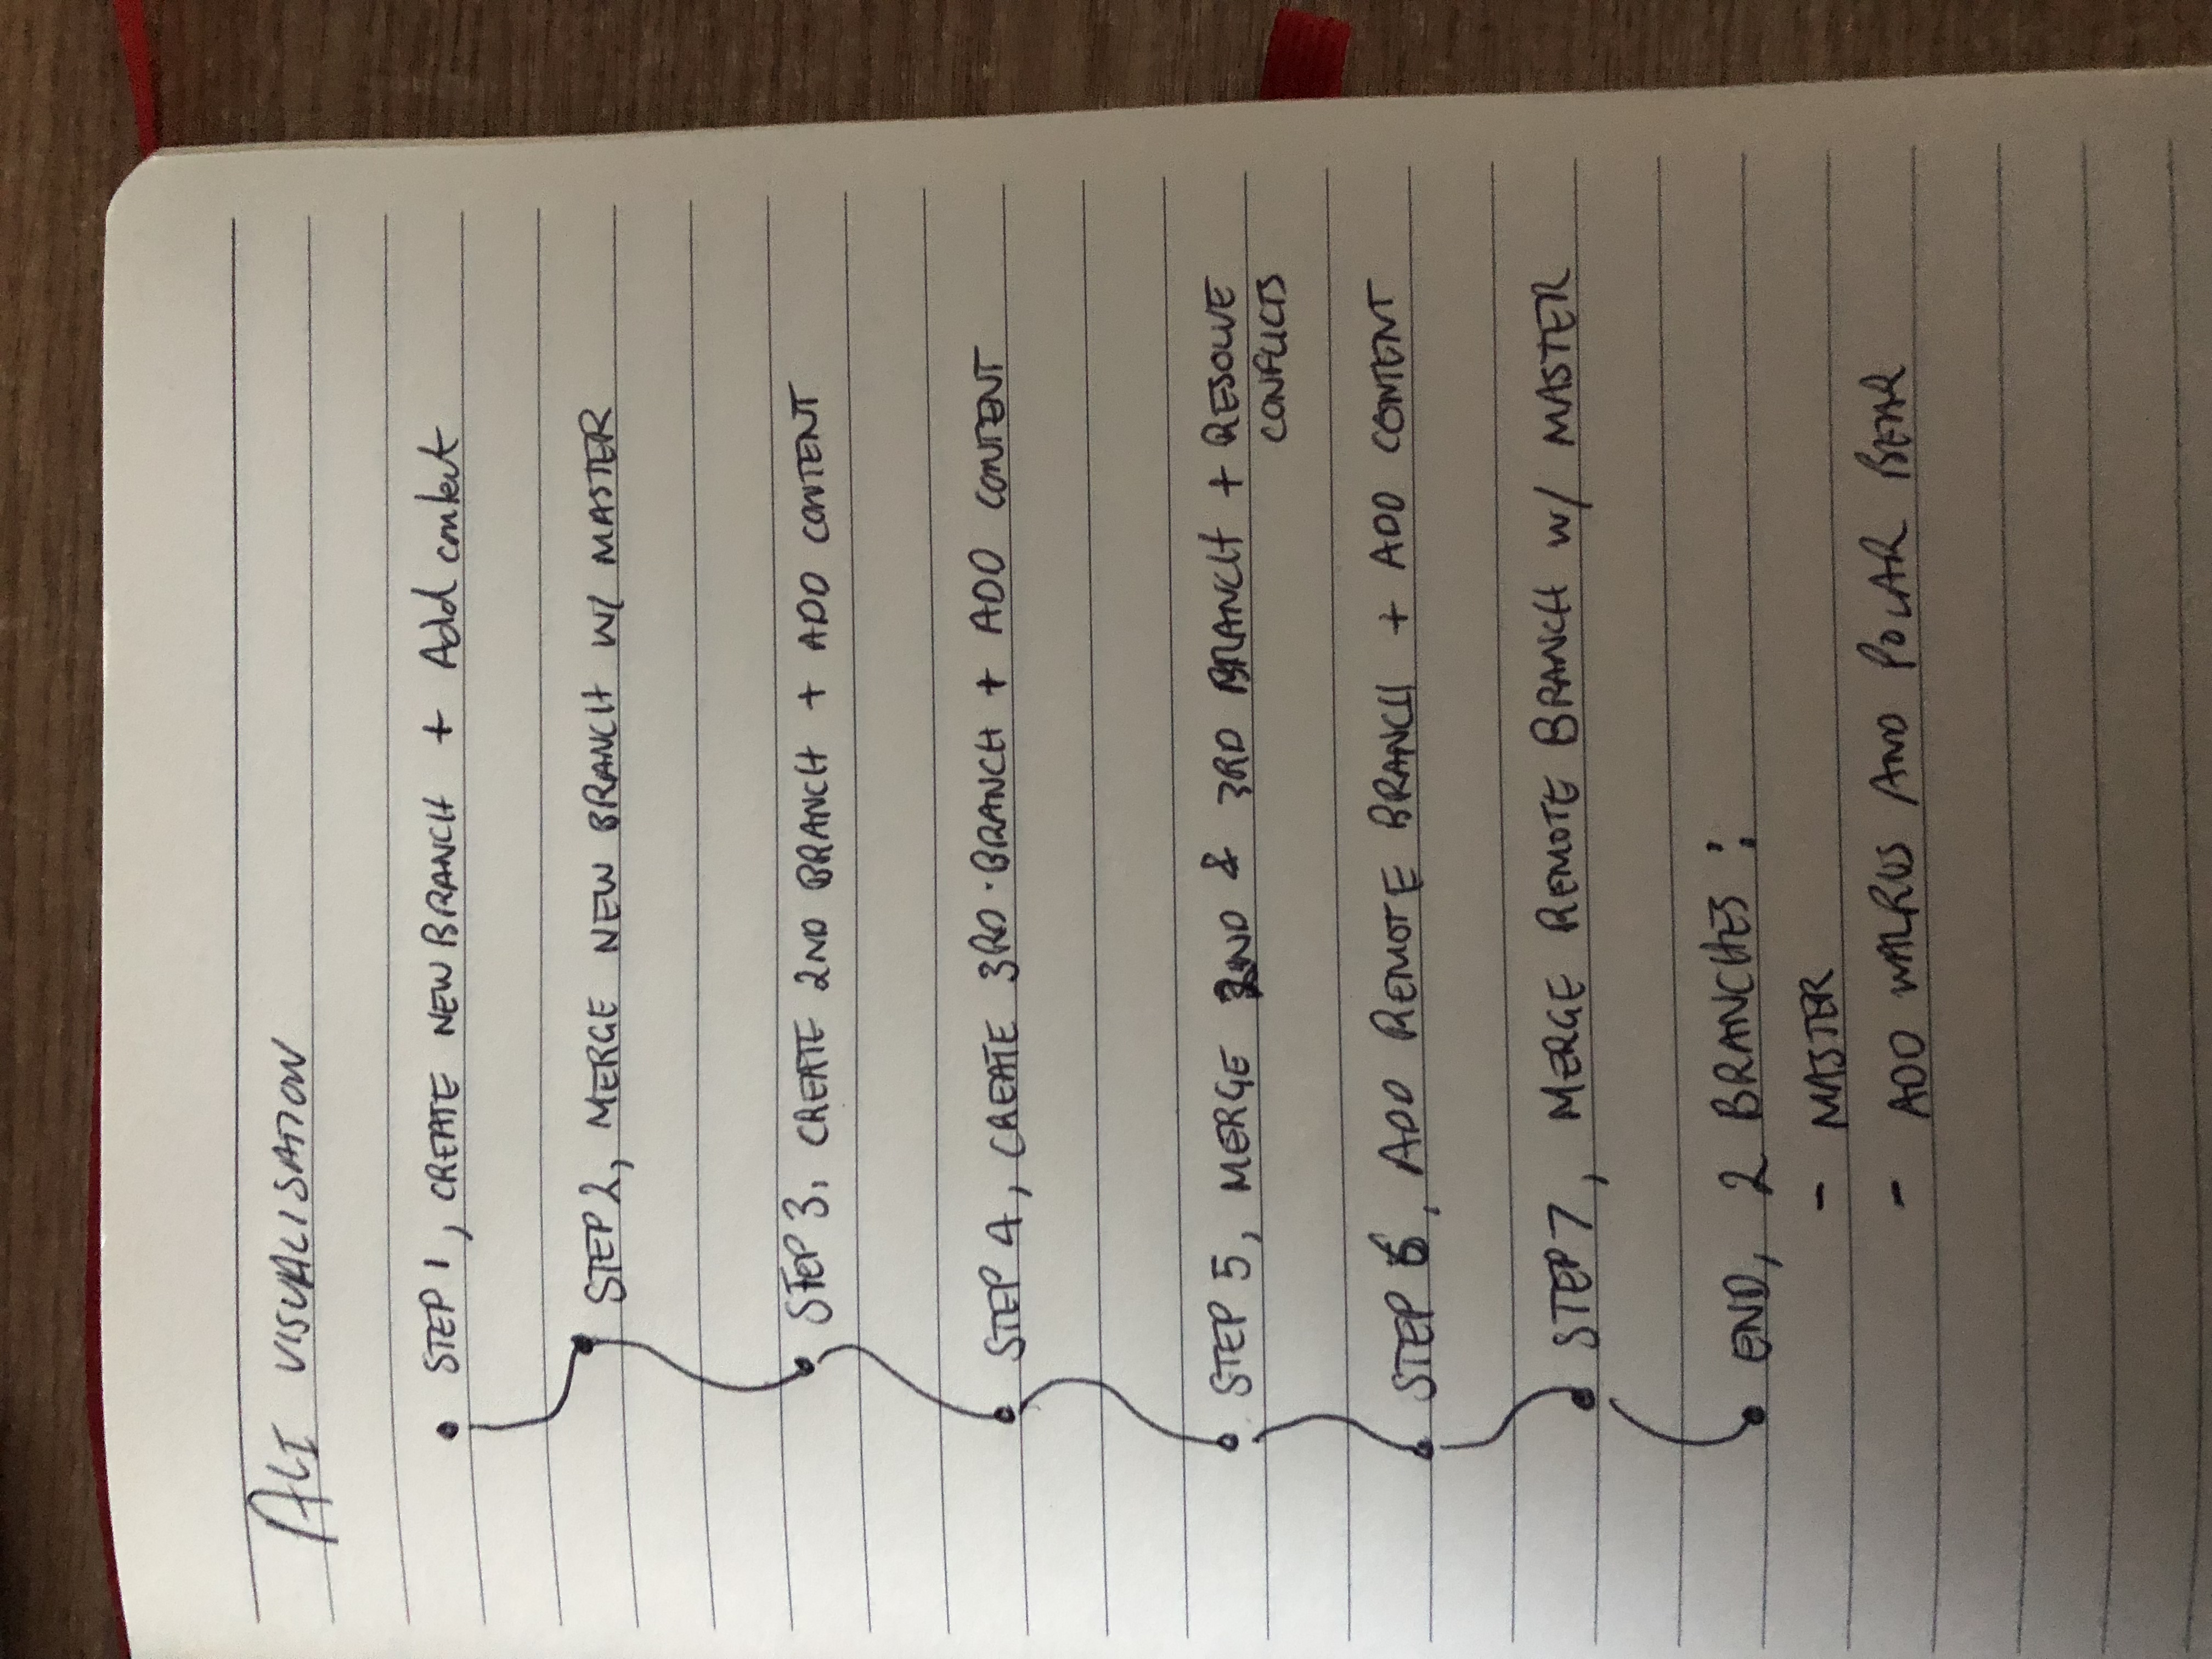 ALI VISUALISATION
STEP 1, CREATE NEW BRANCH + Add content
STEP 2, MERGE NEW BRANCH W/ MASTER
STEP 3, CREATE 2ND BRANCH + ADD CONTENT
STEP 4, CREATE 3RD BRANCH + ADD CONTENT
STEP 5, MERGE 2ND & 3RD BRANCH + RESOLVE
CONFLICTS
STEP 6, ADD REMOTE BRANCH + ADD CONTENT
STEP 7, MERGE REMOTE BRANCH W/ MASTER
END, 2 BRANCHES :
- MASTER
- ADD WALRUS AND POLAR BEAR